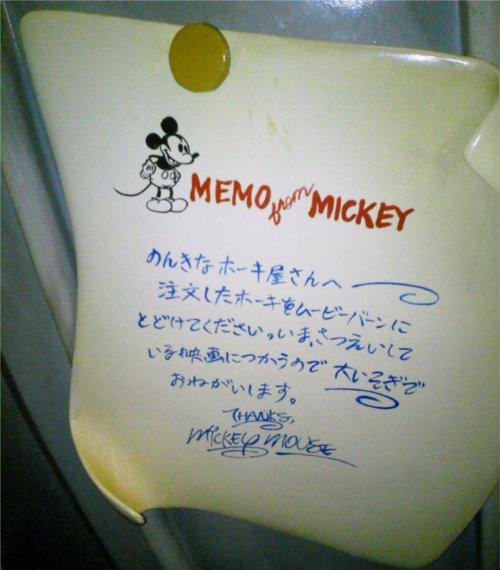 MEMO from MICKEY
のんきなホーキ屋さんへ
注文したホーキをムービーバーンに
とどけてください。いま、さつえいして
いる映画につかうので 大いそぎで
おねがいします。
THANKS,
MICKEY MOUSE